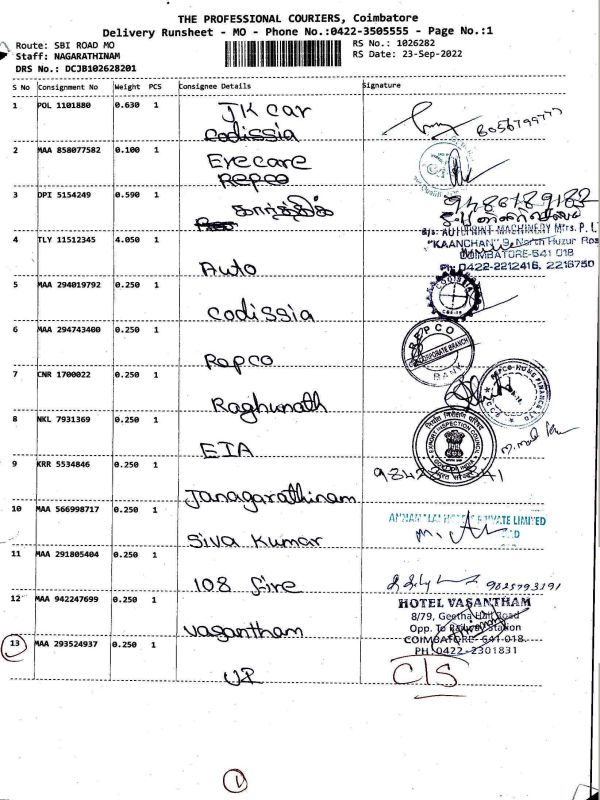 THE PROFESSIONAL COURIERS, Coimbatore
Delivery Runsheet - MO - Phone No.:0422-3505555 - Page No.:1
Route: SBI ROAD MO RS No.: 1026282
Staff: NAGARATHINAM RS Date: 23-Sep-2022
DRS No.: DCJB102628201
S No Consignment No Weight PCS Consignee Details Signature
1 POL 1101880 0.630 1 JK car
8056799777
Codissia
2 MAA 858077582 0.100 1 Eyecare
Repco
3 DPI 5154249 0.590 1 கார்த்திக் 9486189182
4 TLY 11512345 4.050 1 Auto
AUTOPRINT MACHINERY Mfrs. P. L
"KAANCHAN" 9, North Huzur Roa
COIMBATORE-641 018
Ph: 0422-2212416, 2216750
5 MAA 294019792 0.250 1 Codissia
CODISSIA
6 MAA 294743400 0.250 1 Repco
REPCO BANK
CORPORATE BRANCH
7 CNR 1700022 0.250 1 Raghunath
REPCO HOME FINANCE LTD
8 NKL 7931369 0.250 1 EIA
EXPORT INSPECTION COUNCIL
9 KRR 5534846 0.250 1 Janagarathinam
10 MAA 566998717 0.250 1 Siva Kumar
PRIVATE LIMITED
11 MAA 291805404 0.250 1 108 fire
12 MAA 942247699 0.250 1 Vasantham
HOTEL VASANTHAM
8/79, Geetha Hall Road
Opp. To Railway Station
COIMBATORE-641-018.
PH 0422-2301831
13 MAA 293524937 0.250 1 UP
C/S
1